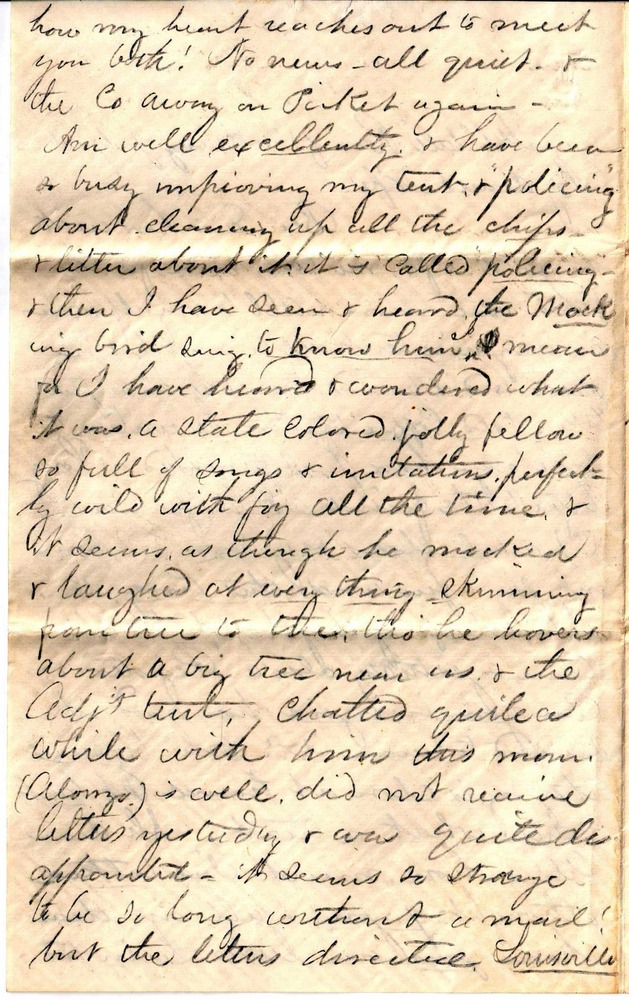 how my heart reaches out to meet
you both! No news - all quiet - &
the Co away on Picket again -
Am well excellently. & have been
so busy improving my tent, & "policing"
about. cleaning up all the chips -
& litter about it. it is called "policing" -
& then I have seen & heard the Mock
ing bird sing, to know him, I mean
for I have heard & wondered what
it was. a slate colored jolly fellow
so full of songs & imitations, perfect-
ly wild with joy all the time. &
it seems, as though he mocked
& laughed at every thing skimming
from tree to tree, tho he hovers
about a big tree near us. & the
Adjt tent, Chatted quite a
while with him this morn.
(Alonzo.) is well. did not receive
letters yesterday & was quite dis
appointed - it seems so strange
to be so long without a mail!
but the letters directed Louisville